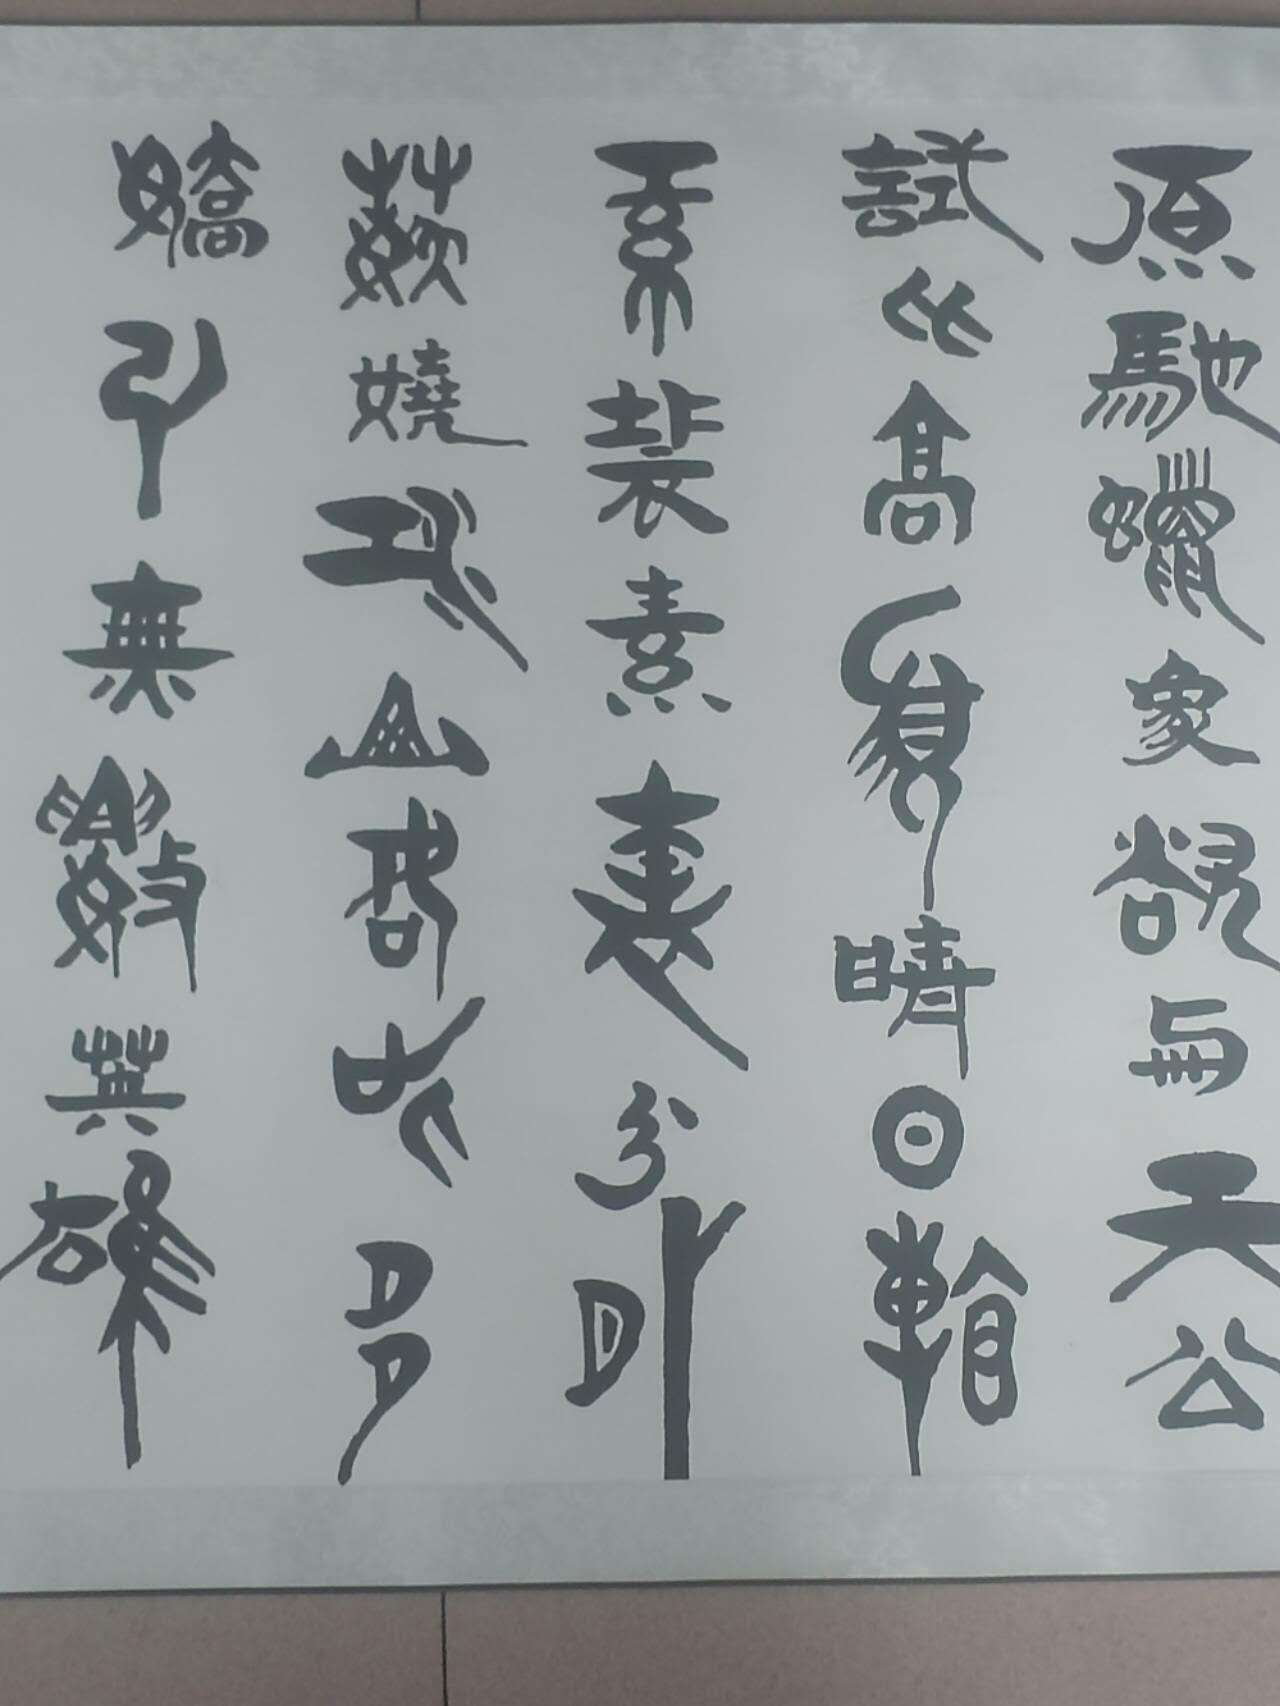 原馳蠟象欲與天公
試比高須晴日看
紅裝素裹分外
妖嬈江山如此多
嬌引無數英雄